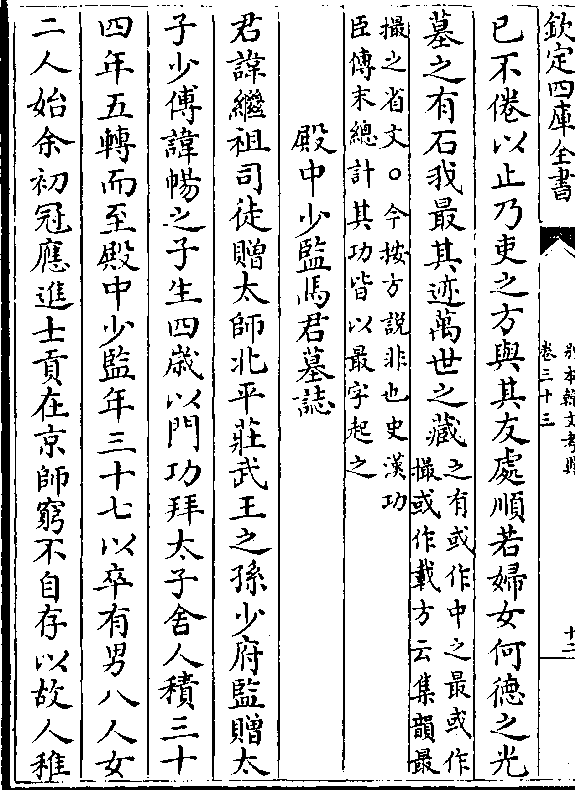 欽定四庫全書
別本韓文考異
卷三十三
十二
已不倦以止乃吏之方與其友處順若婦女何德之光
墓之有石我最其迹萬世之藏之有或作中之最或作
撮或作載方云集韻最
撮之省文○今按方說非也史漢功
臣傳末總計其功皆以最字起之
殿中少監馬君墓誌
君諱繼祖司徒贈太師北平莊武王之孫少府監贈太
子少傅諱暢之子生四歲以門功拜太子舍人積三十
四年五轉而至殿中少監年三十七以卒有男八人女
二人始余初冠應進士貢在京師窮不自存以故人稚